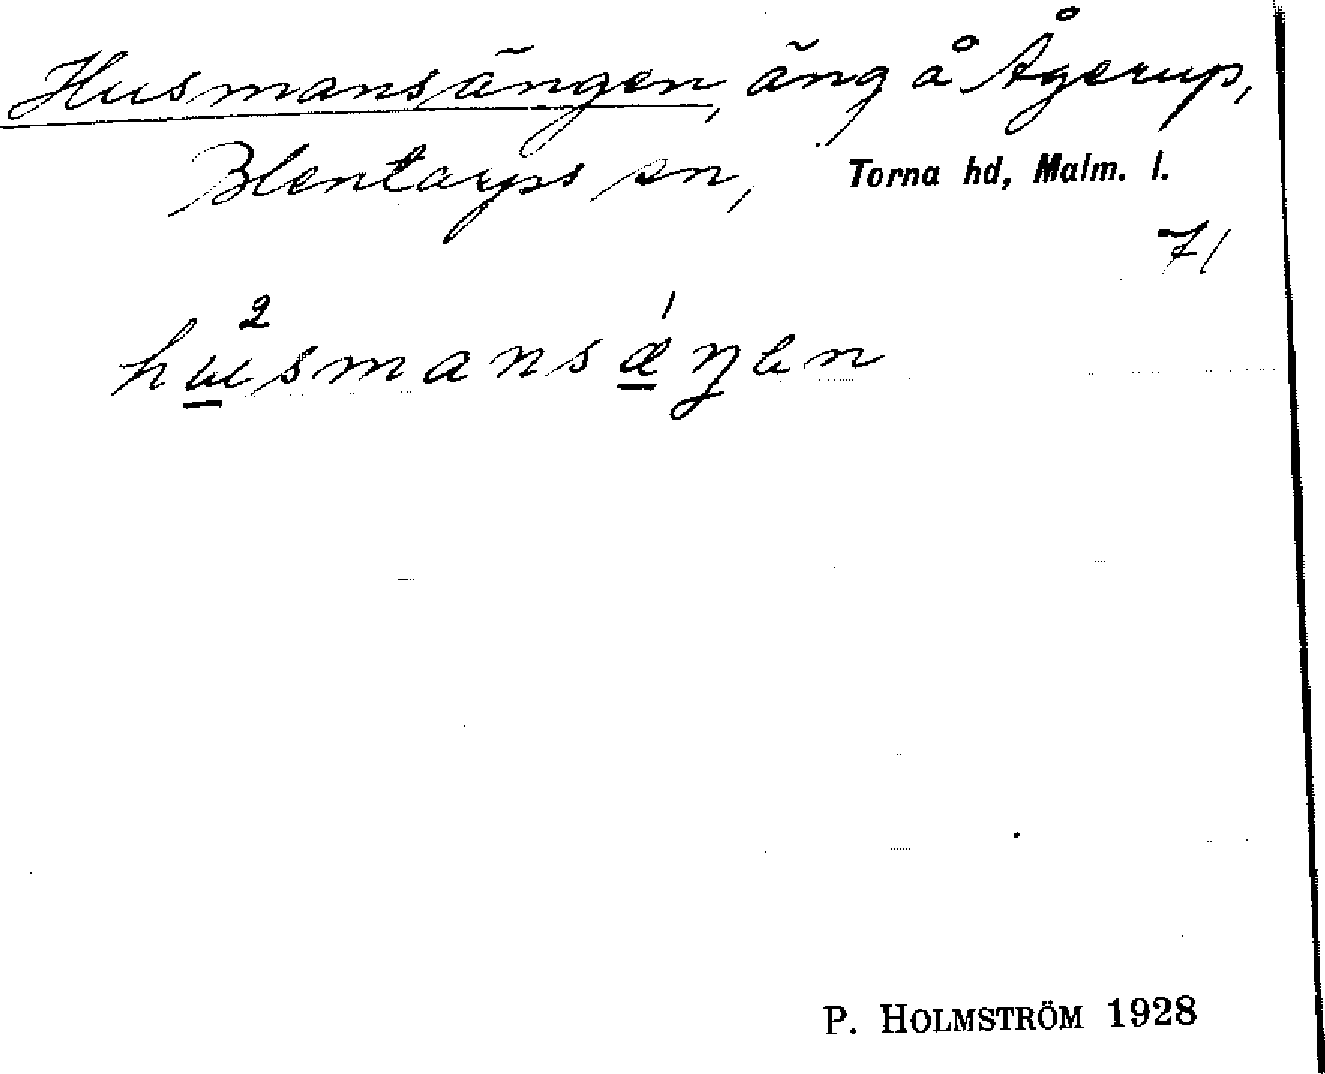 Husmansängen, äng å Ågerup,
Blentarps sn, Torna hd, Malm. l.
71
2 ˈ
husmansæŋen
P. HOLMSTRÖM 1928